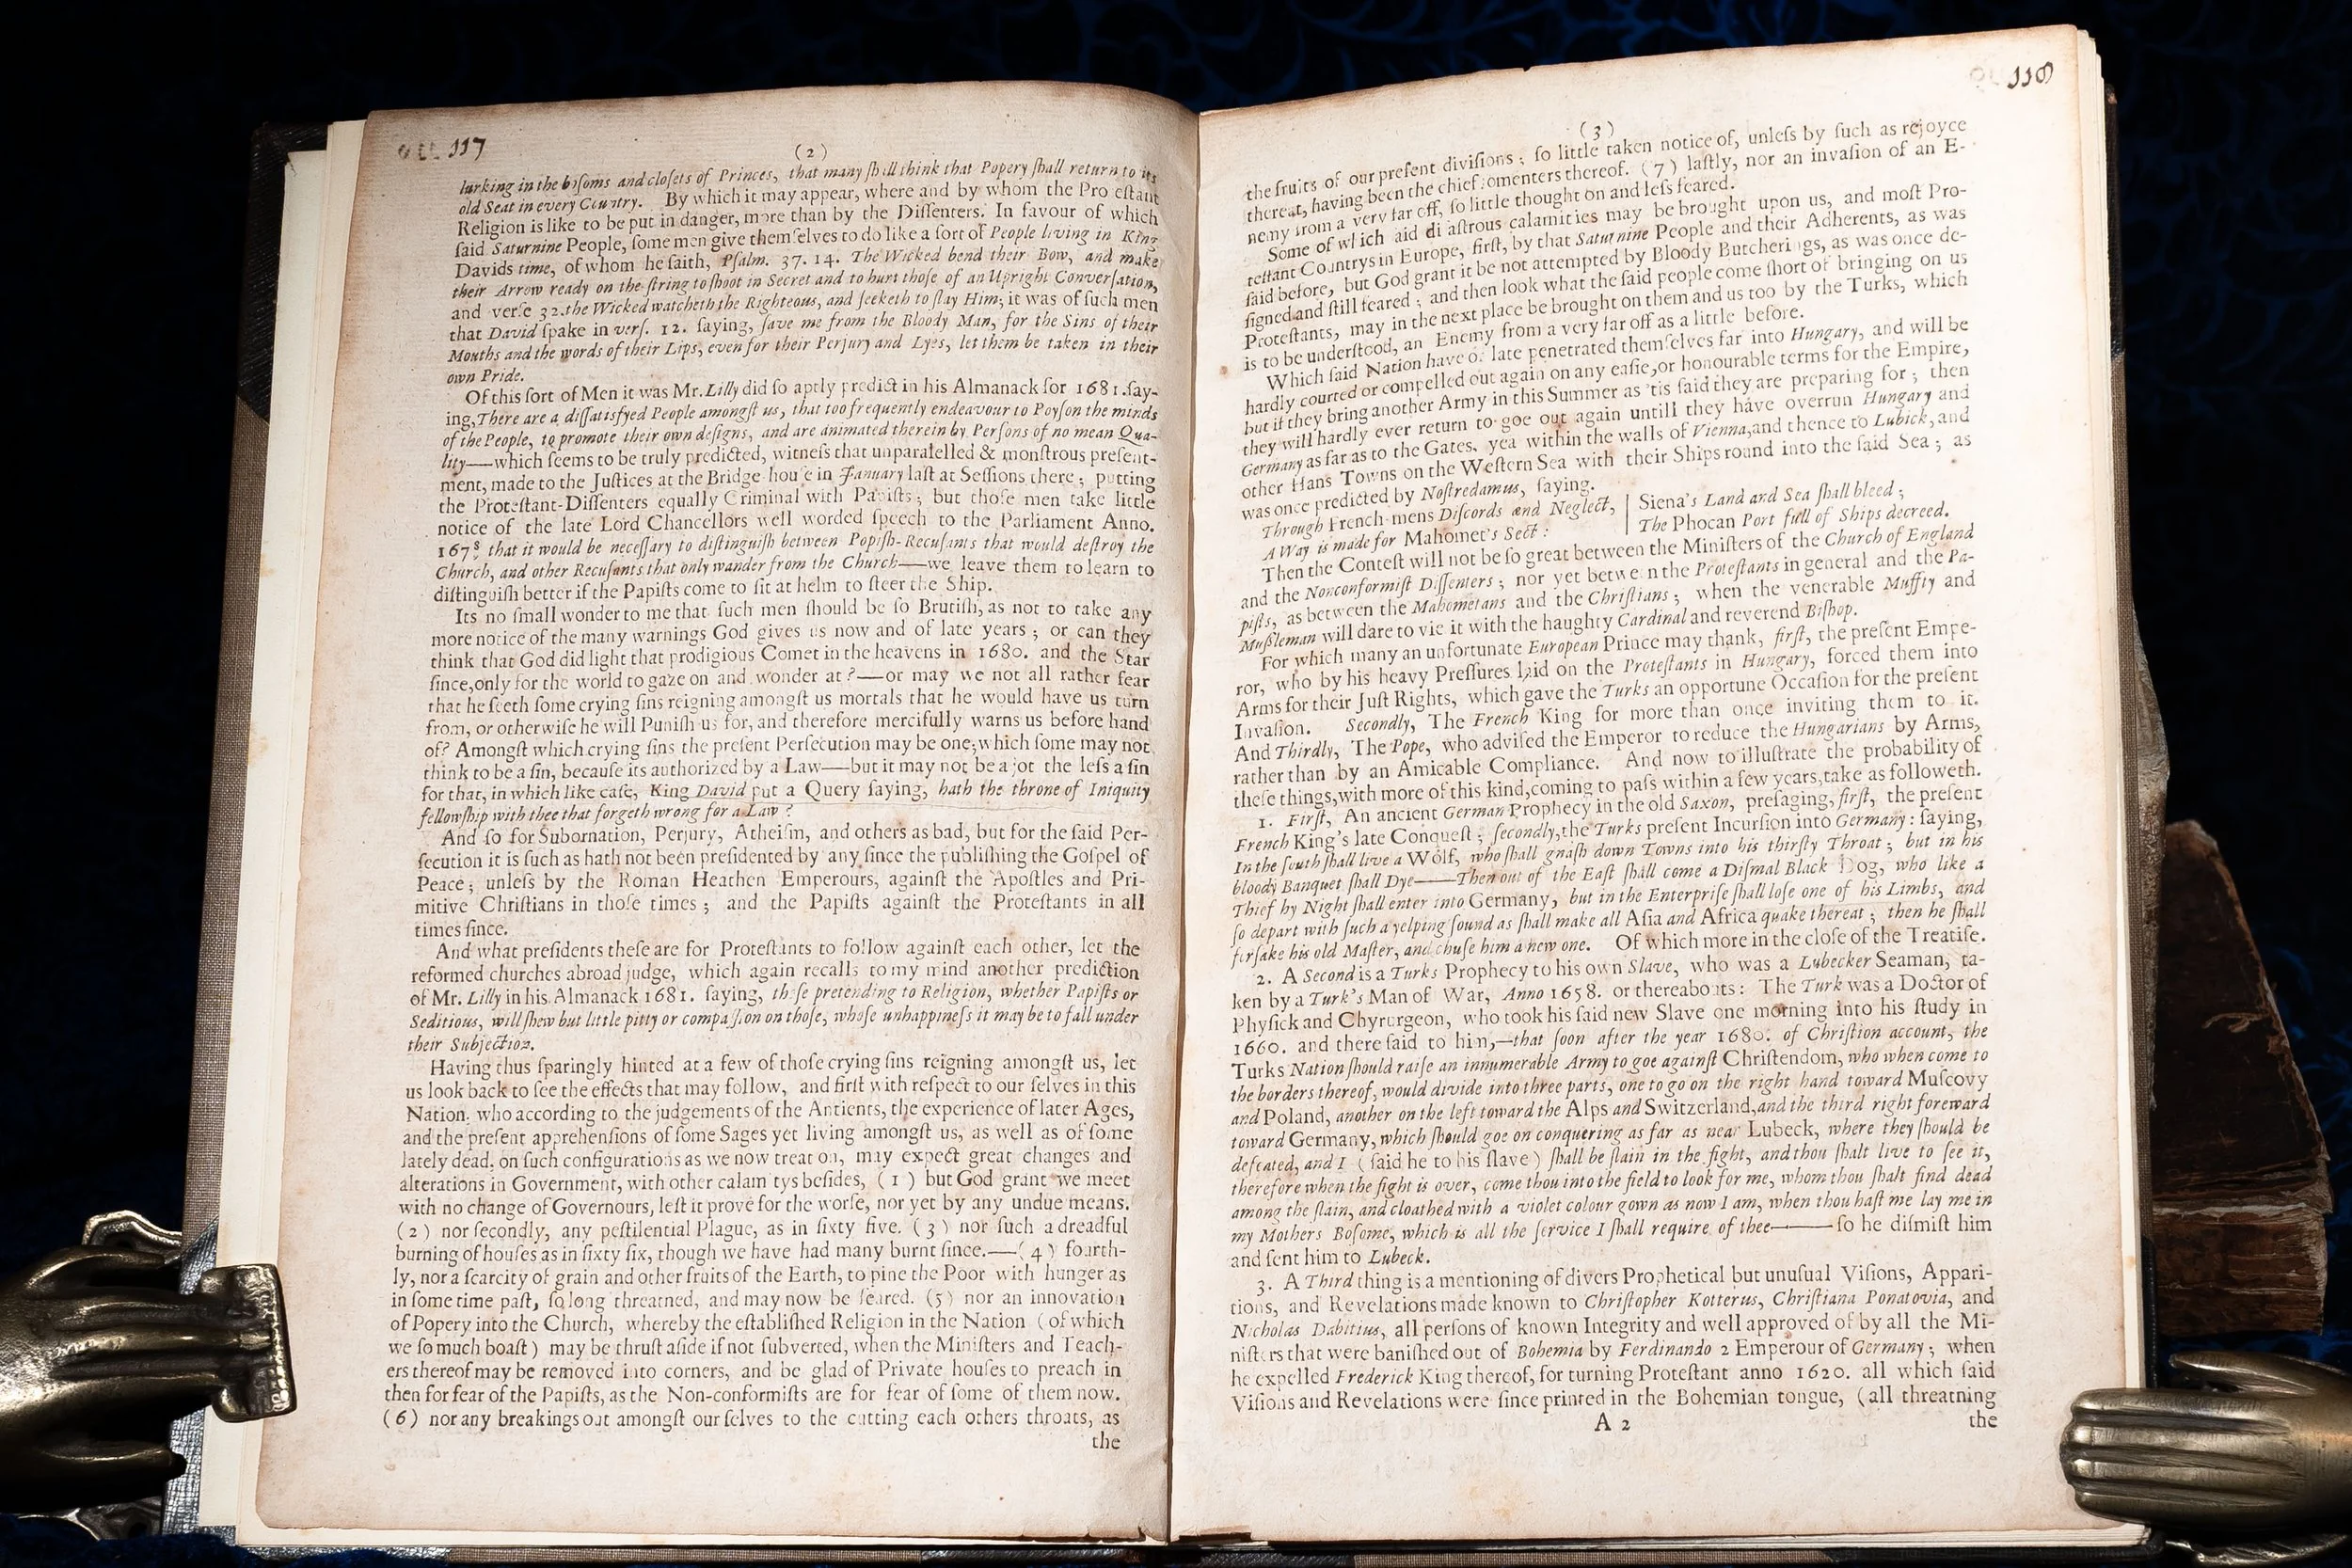 117
(2)
lurking in the bosoms and closets of Princes, that many shall think that Popery shall return to its
old Seat in every Country. By which it may appear, where and by whom the Pro estant
Religion is like to be put in danger, more than by the Dissenters. In favour of which
said Saturnine People, some men give themselves to do like a sort of People living in King
Davids time, of whom he saith, Psalm. 37. 14. The Wicked bend their Bow, and make
their Arrow ready on the string to shoot in Secret and to hurt those of an Upright Conversation,
and verse 32. the Wicked watcheth the Righteous, and seeketh to slay Him; it was of such men
that David spake in vers. 12. saying, save me from the Bloody Man, for the Sins of their
Mouths and the words of their Lips, even for their Perjury and Lyes, let them be taken in their
own Pride.
Of this sort of Men it was Mr. Lilly did so aptly predict in his Almanack for 1681. say-
ing, There are a dissatisfyed People amongst us, that too frequently endeavour to Poyson the minds
of the People, to promote their own designs, and are animated therein by Persons of no mean Qua-
lity—which seems to be truly predicted, witness that unparalelled & monstrous present-
ment, made to the Justices at the Bridge-house in January last at Sessions there; putting
the Protestant-Dissenters equally Criminal with Papists; but those men take little
notice of the late Lord Chancellors well worded speech to the Parliament Anno.
167 that it would be necessary to distinguish between Popish-Recusants that would destroy the
Church, and other Recusants that only wander from the Church—we leave them to learn to
distinguish better if the Papists come to sit at helm to steer the Ship.
Its no small wonder to me that such men should be so Brutish, as not to take any
more notice of the many warnings God gives us now and of late years; or can they
think that God did light that prodigious Comet in the heavens in 1680. and the Star
since, only for the world to gaze on and wonder at?—or may we not all rather fear
that he seeth some crying sins reigning amongst us mortals that he would have us turn
from, or otherwise he will Punish us for, and therefore mercifully warns us before hand
of? Amongst which crying sins the present Persecution may be one; which some may not
think to be a sin, because its authorized by a Law—but it may not be a jot the less a sin
for that, in which like case, King David put a Query saying, hath the throne of Iniquity
fellowship with thee that forgeth wrong for a Law?
And so for Subornation, Perjury, Atheism, and others as bad, but for the said Per-
secution it is such as hath not been presidented by any since the publishing the Gospel of
Peace; unless by the Roman Heathen Emperours, against the Apostles and Pri-
mitive Christians in those times; and the Papists against the Protestants in all
times since.
And what presidents these are for Protestants to follow against each other, let the
reformed churches abroad judge, which again recalls to my mind another prediction
of Mr. Lilly in his Almanack 1681. saying, those pretending to Religion, whether Papists or
Seditious, will shew but little pitty or compassion on those, whose unhappiness it may be to fall under
their Subjection.
Having thus sparingly hinted at a few of those crying sins reigning amongst us, let
us look back to see the effects that may follow, and first with respect to our selves in this
Nation. who according to the judgements of the Antients, the experience of later Ages,
and the present apprehensions of some Sages yet living amongst us, as well as of some
lately dead, on such configurations as we now treat on, may expect great changes and
alterations in Government, with other calam tys besides, (1) but God grant we meet
with no change of Governours, lest it prove for the worse, nor yet by any undue means.
(2) nor secondly, any pestilential Plague, as in sixty five. (3) nor such a dreadful
burning of houses as in sixty six, though we have had many burnt since.—(4) fourth-
ly, nor a scarcity of grain and other fruits of the Earth, to pine the Poor with hunger as
in some time past, so long threatned, and may now be feared. (5) nor an innovation
of Popery into the Church, whereby the established Religion in the Nation (of which
we so much boast) may be thrust aside if not subverted, when the Ministers and Teach-
ers thereof may be removed into corners, and be glad of Private houses to preach in
then for fear of the Papists, as the Non-conformists are for fear of some of them now.
(6) nor any breakings out amongst our selves to the cutting each others throats, as
the
118
(3)
the fruits of our present divisions; so little taken notice of, unless by such as rejoyce
thereat, having been the chief fomenters thereof. (7) lastly, nor an invasion of an E-
nemy from a very far off, so little thought on and less feared.
Some of which aid di astrous calamities may be brought upon us, and most Pro-
testant Countrys in Europe, first, by that Saturnine People and their Adherents, as was
said before, but God grant it be not attempted by Bloody Butcherings, as was once de-
signed and still feared; and then look what the said people come short of bringing on us
Protestants, may in the next place be brought on them and us too by the Turks, which
is to be understood, an Enemy from a very far off as a little before.
Which said Nation have of late penetrated themselves far into Hungary, and will be
hardly courted or compelled out again on any easie, or honourable terms for the Empire,
but if they bring another Army in this Summer as 'tis said they are preparing for; then
they will hardly ever return to goe out again untill they have overrun Hungary and
Germany as far as to the Gates, yea within the walls of Vienna, and thence to Lubick, and
other Hans Towns on the Western Sea with their Ships round into the said Sea; as
was once predicted by Nostredamus, saying.
Through French-mens Discords and Neglect,
A Way is made for Mahomet's Sect:
Siena's Land and Sea shall bleed;
The Phocan Port full of Ships decreed.
Then the Contest will not be so great between the Ministers of the Church of England
and the Nonconformist Dissenters; nor yet betwe n the Protestants in general and the Pa-
pists, as between the Mahometans and the Christians; when the venerable Muffty and
Mussleman will dare to vie it with the haughty Cardinal and reverend Bishop.
For which many an unfortunate European Prince may thank, first, the present Empe-
ror, who by his heavy Pressures laid on the Protestants in Hungary, forced them into
Arms for their Just Rights, which gave the Turks an opportune Occasion for the present
Invasion. Secondly, The French King for more than once inviting them to it.
And Thirdly, The Pope, who advised the Emperor to reduce the Hungarians by Arms,
rather than by an Amicable Compliance. And now to illustrate the probability of
these things, with more of this kind, coming to pass within a few years, take as followeth.
1. First, An ancient German Prophecy in the old Saxon, presaging, first, the present
French King's late Conquest; secondly, the Turks present Incursion into Germany: saying,
In the south shall live a Wolf, who shall gnash down Towns into his thirsty Throat; but in his
bloody Banquet shall Dye——Then out of the East shall come a Dismal Black Dog, who like a
Thief by Night shall enter into Germany, but in the Enterprise shall lose one of his Limbs, and
so depart with such a yelping sound as shall make all Asia and Africa quake thereat; then he shall
forsake his old Master, and chuse him a new one. Of which more in the close of the Treatise.
2. A Second is a Turks Prophecy to his own Slave, who was a Lubecker Seaman, ta-
ken by a Turk's Man of War, Anno 1658. or thereabouts: The Turk was a Doctor of
Physick and Chyrurgeon, who took his said new Slave one morning into his study in
1660. and there said to him,—that soon after the year 1680. of Christion account, the
Turks Nation should raise an innumerable Army to goe against Christendom, who when come to
the borders thereof, would divide into three parts, one to go on the right hand toward Muscovy
and Poland, another on the left toward the Alps and Switzerland, and the third right foreward
toward Germany, which should goe on conquering as far as near Lubeck, where they should be
defeated, and I (said he to his slave) shall be slain in the fight, and thou shalt live to see it,
therefore when the fight is over, come thou into the field to look for me, whom thou shalt find dead
among the slain, and cloathed with a violet colour gown as now I am, when thou hast me lay me in
my Mothers Bosome, which is all the service I shall require of thee———so he dismist him
and sent him to Lubeck.
3. A Third thing is a mentioning of divers Prophetical but unusual Visions, Appari-
tions, and Revelations made known to Christopher Kotterus, Christiana Ponatovia, and
Nicholas Dabitius, all persons of known Integrity and well approved of by all the Mi-
nisters that were banished out of Bohemia by Ferdinando 2 Emperour of Germany; when
he expelled Frederick King thereof, for turning Protestant anno 1620. all which said
Visions and Revelations were since printed in the Bohemian tongue, (all threatning
A 2
the